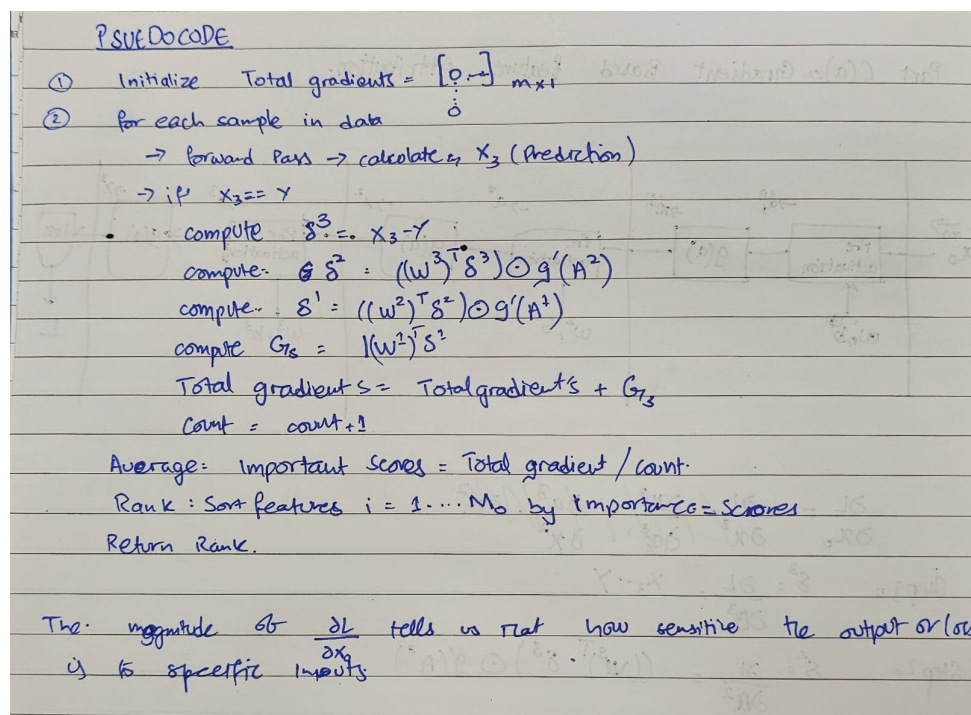 PSUEDOCODE
① Initialize Total gradients = [0 ...] m×1
0
② for each sample in data
→ forward Pass → calculate X₃ (Prediction)
→ if X₃ == Y
compute δ³ = X₃-Y
compute δ² = ((W³)ᵀδ³) ⊙ g'(A²)
compute δ¹ = ((W²)ᵀδ²) ⊙ g'(A¹)
compute Gs = |(W²)ᵀδ²
Total gradients = Total gradients + Gs
Count = count + 1
Average: Important scores = Total gradient / count.
Rank : Sort features i = 1....M₀ by Importance = Scrores
Return Rank.
The magnitude of ∂L/∂X₀ tells us that how sensitive the output or
is to specific inputs.